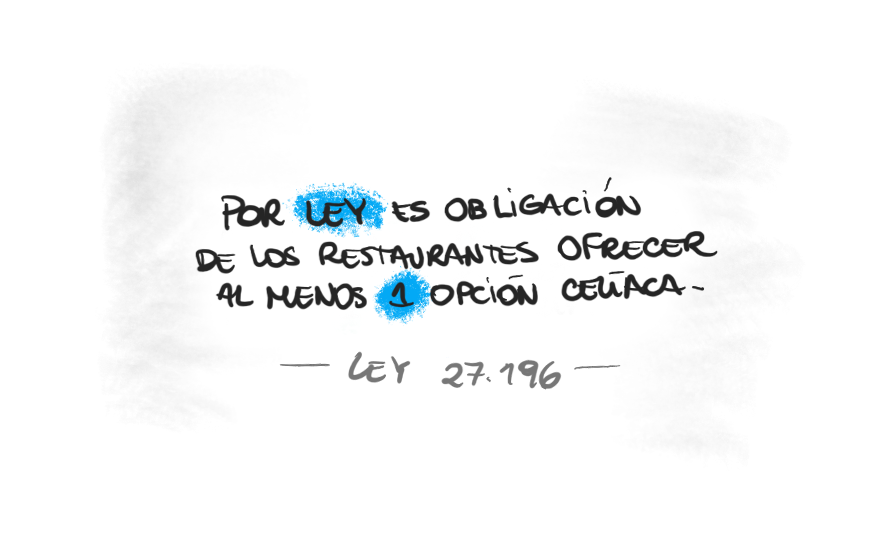 POR LEY ES OBLIGACIÓN
DE LOS RESTAURANTES OFRECER
AL MENOS 1 OPCIÓN CELÍACA-
— LEY 27.196 —